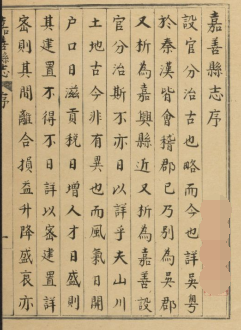 嘉善縣志序
設官分治古也略而今也詳吳粵
於秦漢皆會稽郡已乃別為吳郡
又析為嘉興縣近又析為嘉善設
官分治斯不亦日以詳乎夫山川
土地古今非有異也而風氣日開
户口日滋貢稅日增人才日盛則
其建置不得不日詳以密建置詳
密則其間離合損益升降盛衰亦
嘉善縣志 序